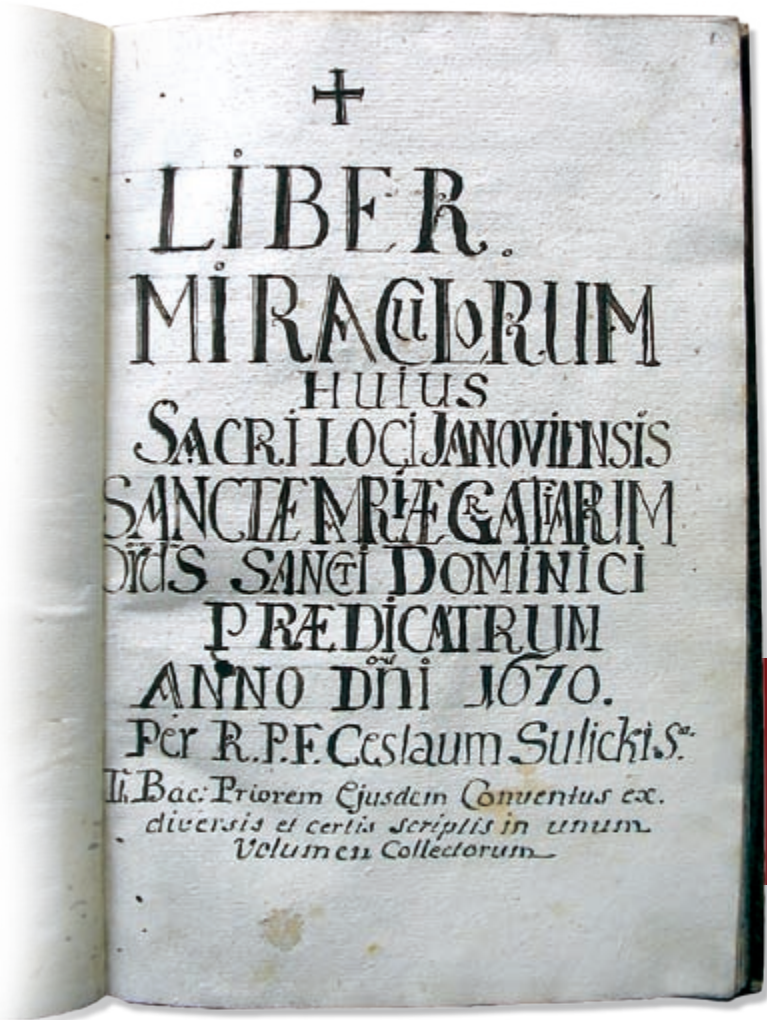 LIBER.
MIRACULORUM
HUIUS
SACRI LOCI JANOVIENSIS
SANCTÆ MARIÆ GRATIARUM
Ordīs SANCTI DOMINICI
PRÆDICATRUM
ANNO Dñi 1670.
Per R.P.F. Ceslaum Sulicki S.
Th. Bac: Priorem Ejusdem Conventus ex.
diversis et certis scriptis in unum
Volumen Collectorum